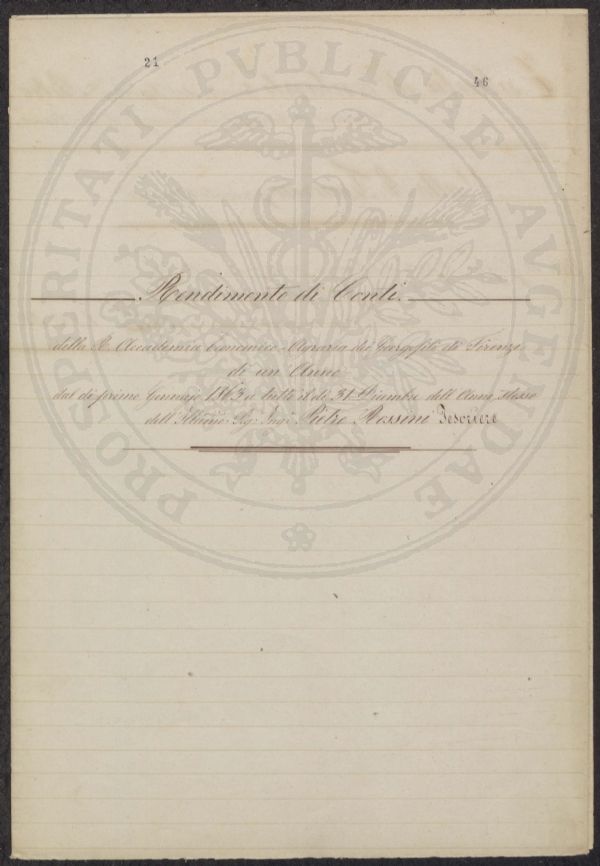 21
46
PROSPERITATI PVBLICAE AVGENDAE
Rendimento di Conti.
della R. Accademia Economico-Agraria dei Georgofili di Firenze
di un Anno
dal di primo Gennaio 1863 a tutto il di 31 Dicembre dell'Anno stesso
dell'Illmo. Sig. Pietro Rossini Tesoriere